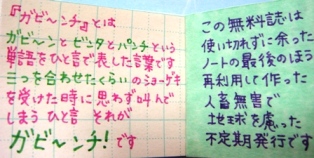 『ガビ〜ンチ』とは
ガビ〜ンとビンタとパンチという
単語をひと言で表した言葉です
三つを合わせたくらいのショーゲキ
を受けた時に思わず叫んで
しまうひと言 それが
ガビ〜ンチ!です
この無料誌は
使い切れずに余った
ノートの最後のほう
再利用して作った
人畜無害で
地球を慮った
不定期発行です